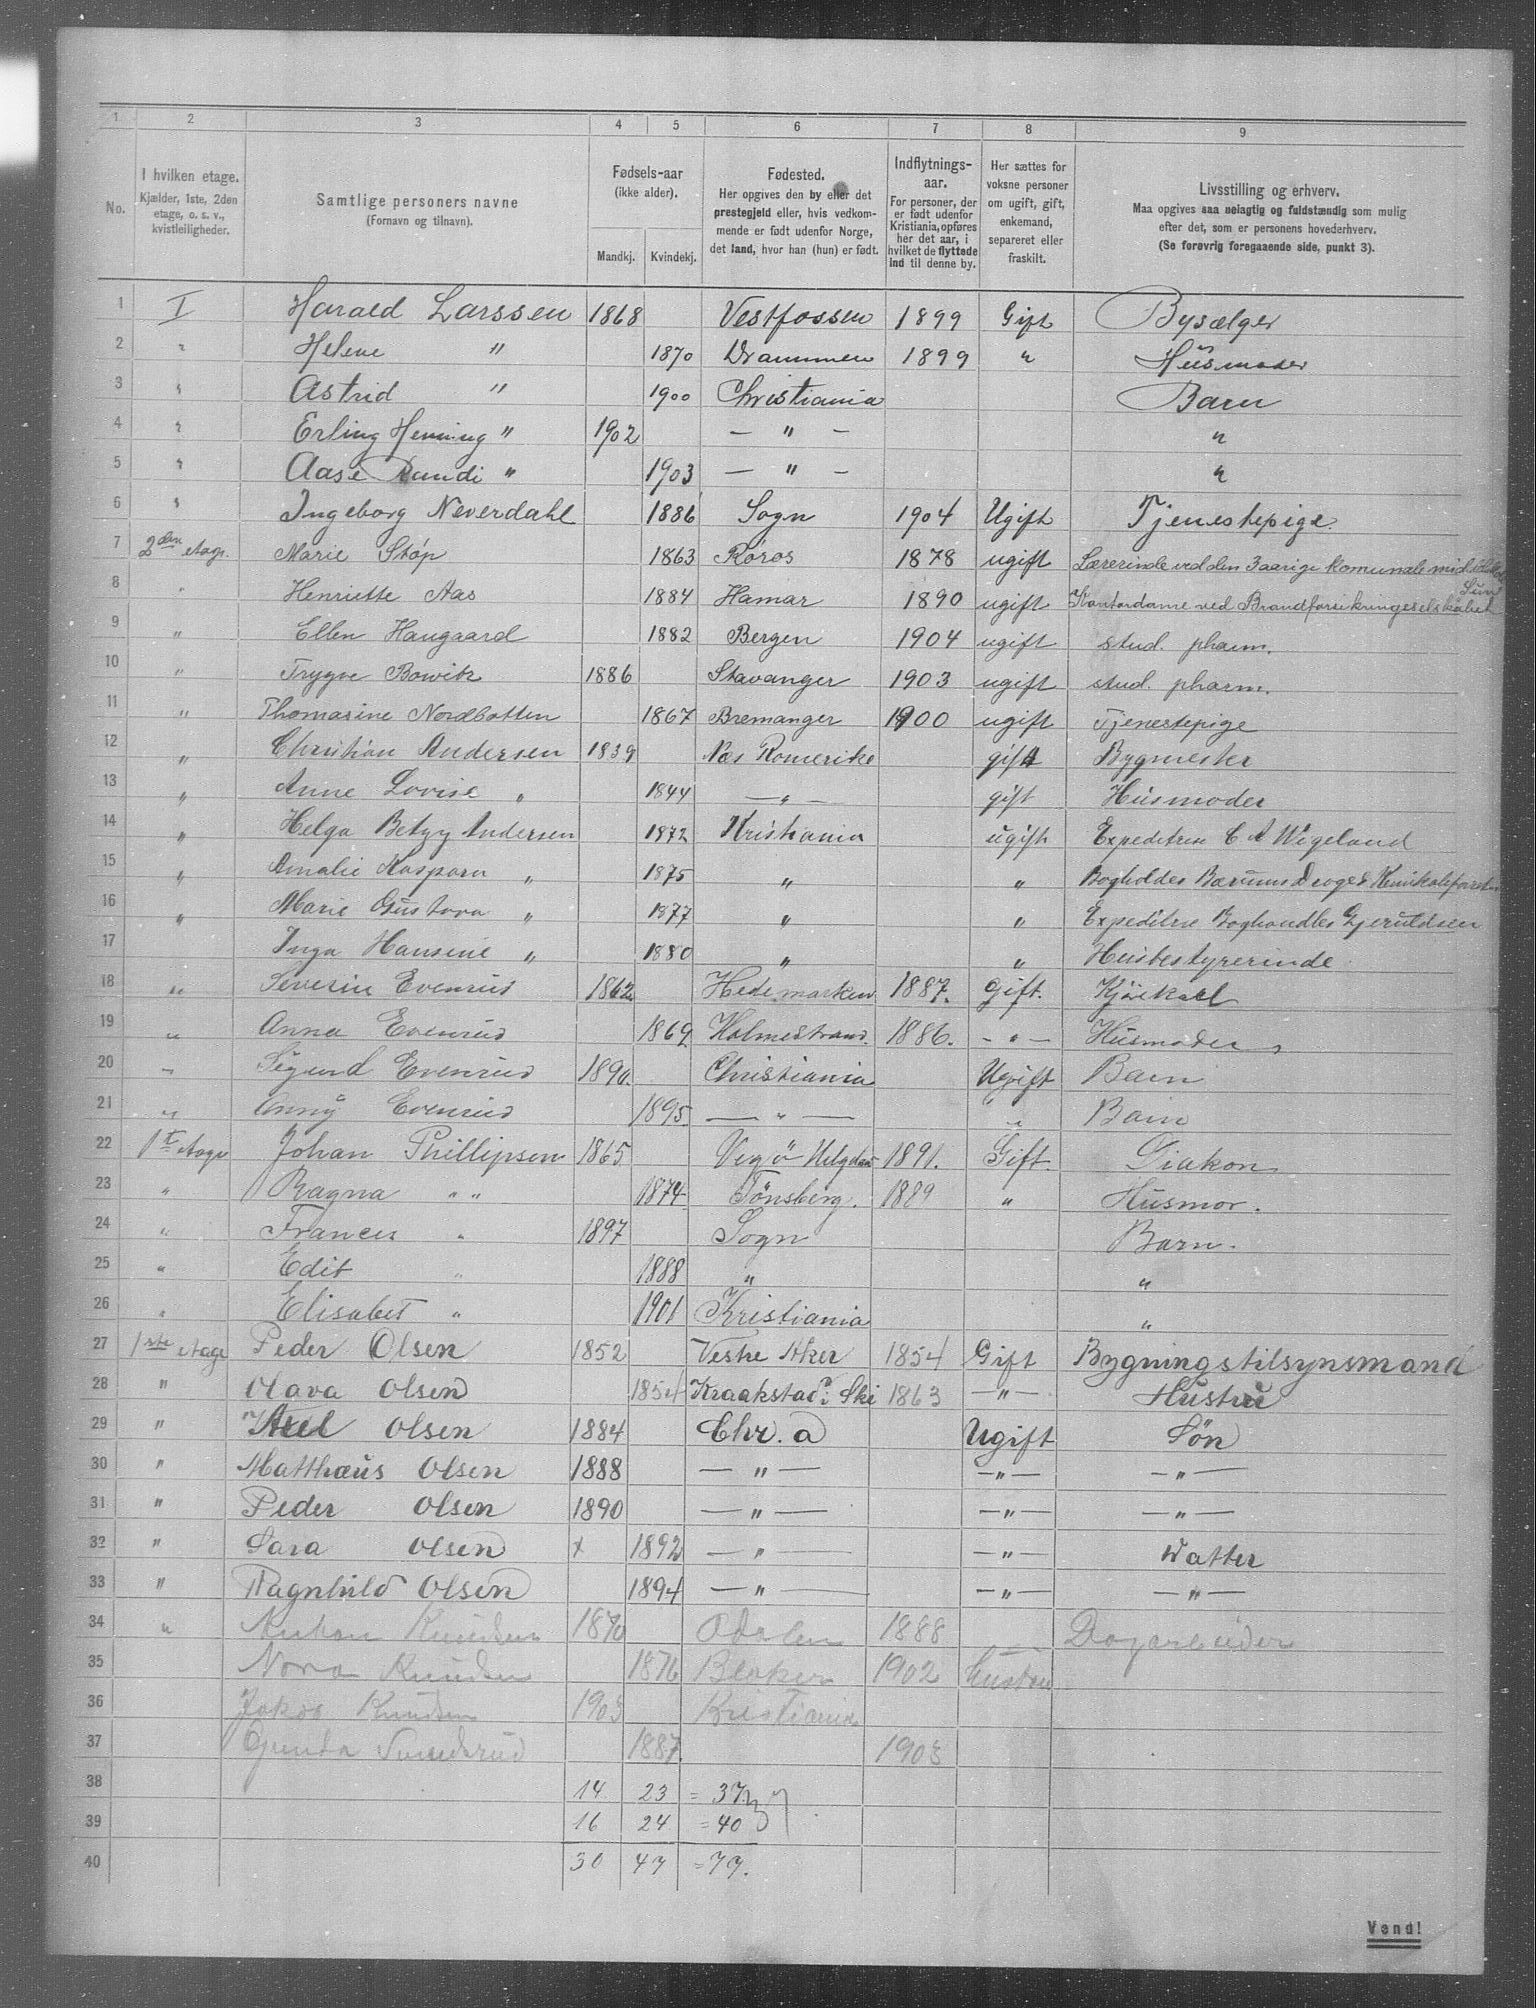 1 2 3 4 5 6 7 8 9
No. | I hvilken etage. Kjælder, 1ste, 2den etage, o. s. v., kvistleiligheder. | Samtlige personers navne (Fornavn og tilnavn). | Fødsels-aar (ikke alder). Mandkj. Kvindekj. | Fødested. Her opgives den by eller det prestegjeld eller, hvis vedkommende er født udenfor Norge, det land, hvor han (hun) er født. | Indflytnings-aar. For personer, der er født udenfor Kristiania, opføres her det aar, i hvilket de flyttede ind til denne by. | Her sættes for voksne personer om ugift, gift, enkemand, separeret eller fraskilt. | Livsstilling og erhverv. Maa opgives saa nøiagtig og fuldstændig som mulig efter det, som er personens hovederhverv. (Se forøvrig foregaaende side, punkt 3).
1 I Harald Larssen 1868 Vestfossen 1899 Gift Bysælger
2 " Helene " 1870 Drammen 1899 " Husmoder
3 " Astrid " 1900 Christiania Barn
4 " Erling Henning " 1902 — " — "
5 " Aase Randi " 1903 — " — "
6 " Ingeborg Neverdahl 1886 Sogn 1904 Ugift Tjenestepige.
7 2den etage Marie Støp 1863 Røros 1878 ugift Lærerinde ved den 3aarige komunale
8 " Henriette Aas 1884 Hamar 1890 ugift Kontordame ved Brandforsikringsselskabet
9 " Ellen Haugaard 1882 Bergen 1904 ugift stud. pharm.
10 " Trygve Bowitz 1886 Stavanger 1903 ugift stud. pharm.
11 " Thomasine Nordbotten 1867 Bremanger 1900 ugift Tjenestepige
12 " Christian Andersen 1839 Næs Romerike gift Bygmester
13 " Anne Lovise " 1844 — " — gift Husmoder
14 " Helga Betzy Andersen 1872 Kristiania ugift Expeditrise C A Wigeland
15 " Amalie Kaspara " 1875 " " Bogholder Bærums
16 " Marie Gustava " 1877 " " Expeditrise Boghandler Gjeruldsen
17 Inga Hansine " 1880 " " Husbestyrerinde
18 " Severin Evenrud 1862 Hedemarken 1887. Gift. Kjørekarl
19 " Anna Evenrud 1869 Holmestrand. 1886. - " - Husmoder
20 " Sigurd Evenrud 1890. Christiania Ugift Barn
21 " Anny Evenrud 1895. — " — " Barn
22 1st etage Johan Phillipsen 1865 Vegø Helgeland 1891. Gift Diakon
23 " Ragna " " 1874 Tønsberg. 1889 " Husmor.
24 " Frances " 1897 Sogn Barn.
25 " Edit " 1888 " "
26 " Elisabet " 1901 Kristiania "
27 1ste etage Peder Olsen 1852 Vestre Aker 1854 Gift Bygningstilsynsmand
28 " Olava Olsen 1854 Kraakstad i Ski 1863 — " — Hustru
29 " Axel Olsen 1884 Chr. a Ugift Søn
30 " Matthæus Olsen 1888 — " — — " — — " —
31 " Peder Olsen 1890 — " — — " — — " —
32 " Sara Olsen x 1892 — " — — " — Datter
33 " Ragnhild Olsen 1894 — " — — " — — " —
34 " Anton Knudsen 1870 Odalen 1888 Dagarbeider
35 Nora Knudsen 1876 Blaker 1902 Hustru
36 Jakob Knudsen 1905 Kristiania
37 Gunda 1887. 1905
38 14 23 = 37
39 16 24 = 40
40 30 47 = 77.
Vend!